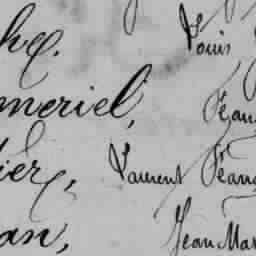 he. Louis
meriel, Jean
ier, Laurent Jean
an, Jean Mar